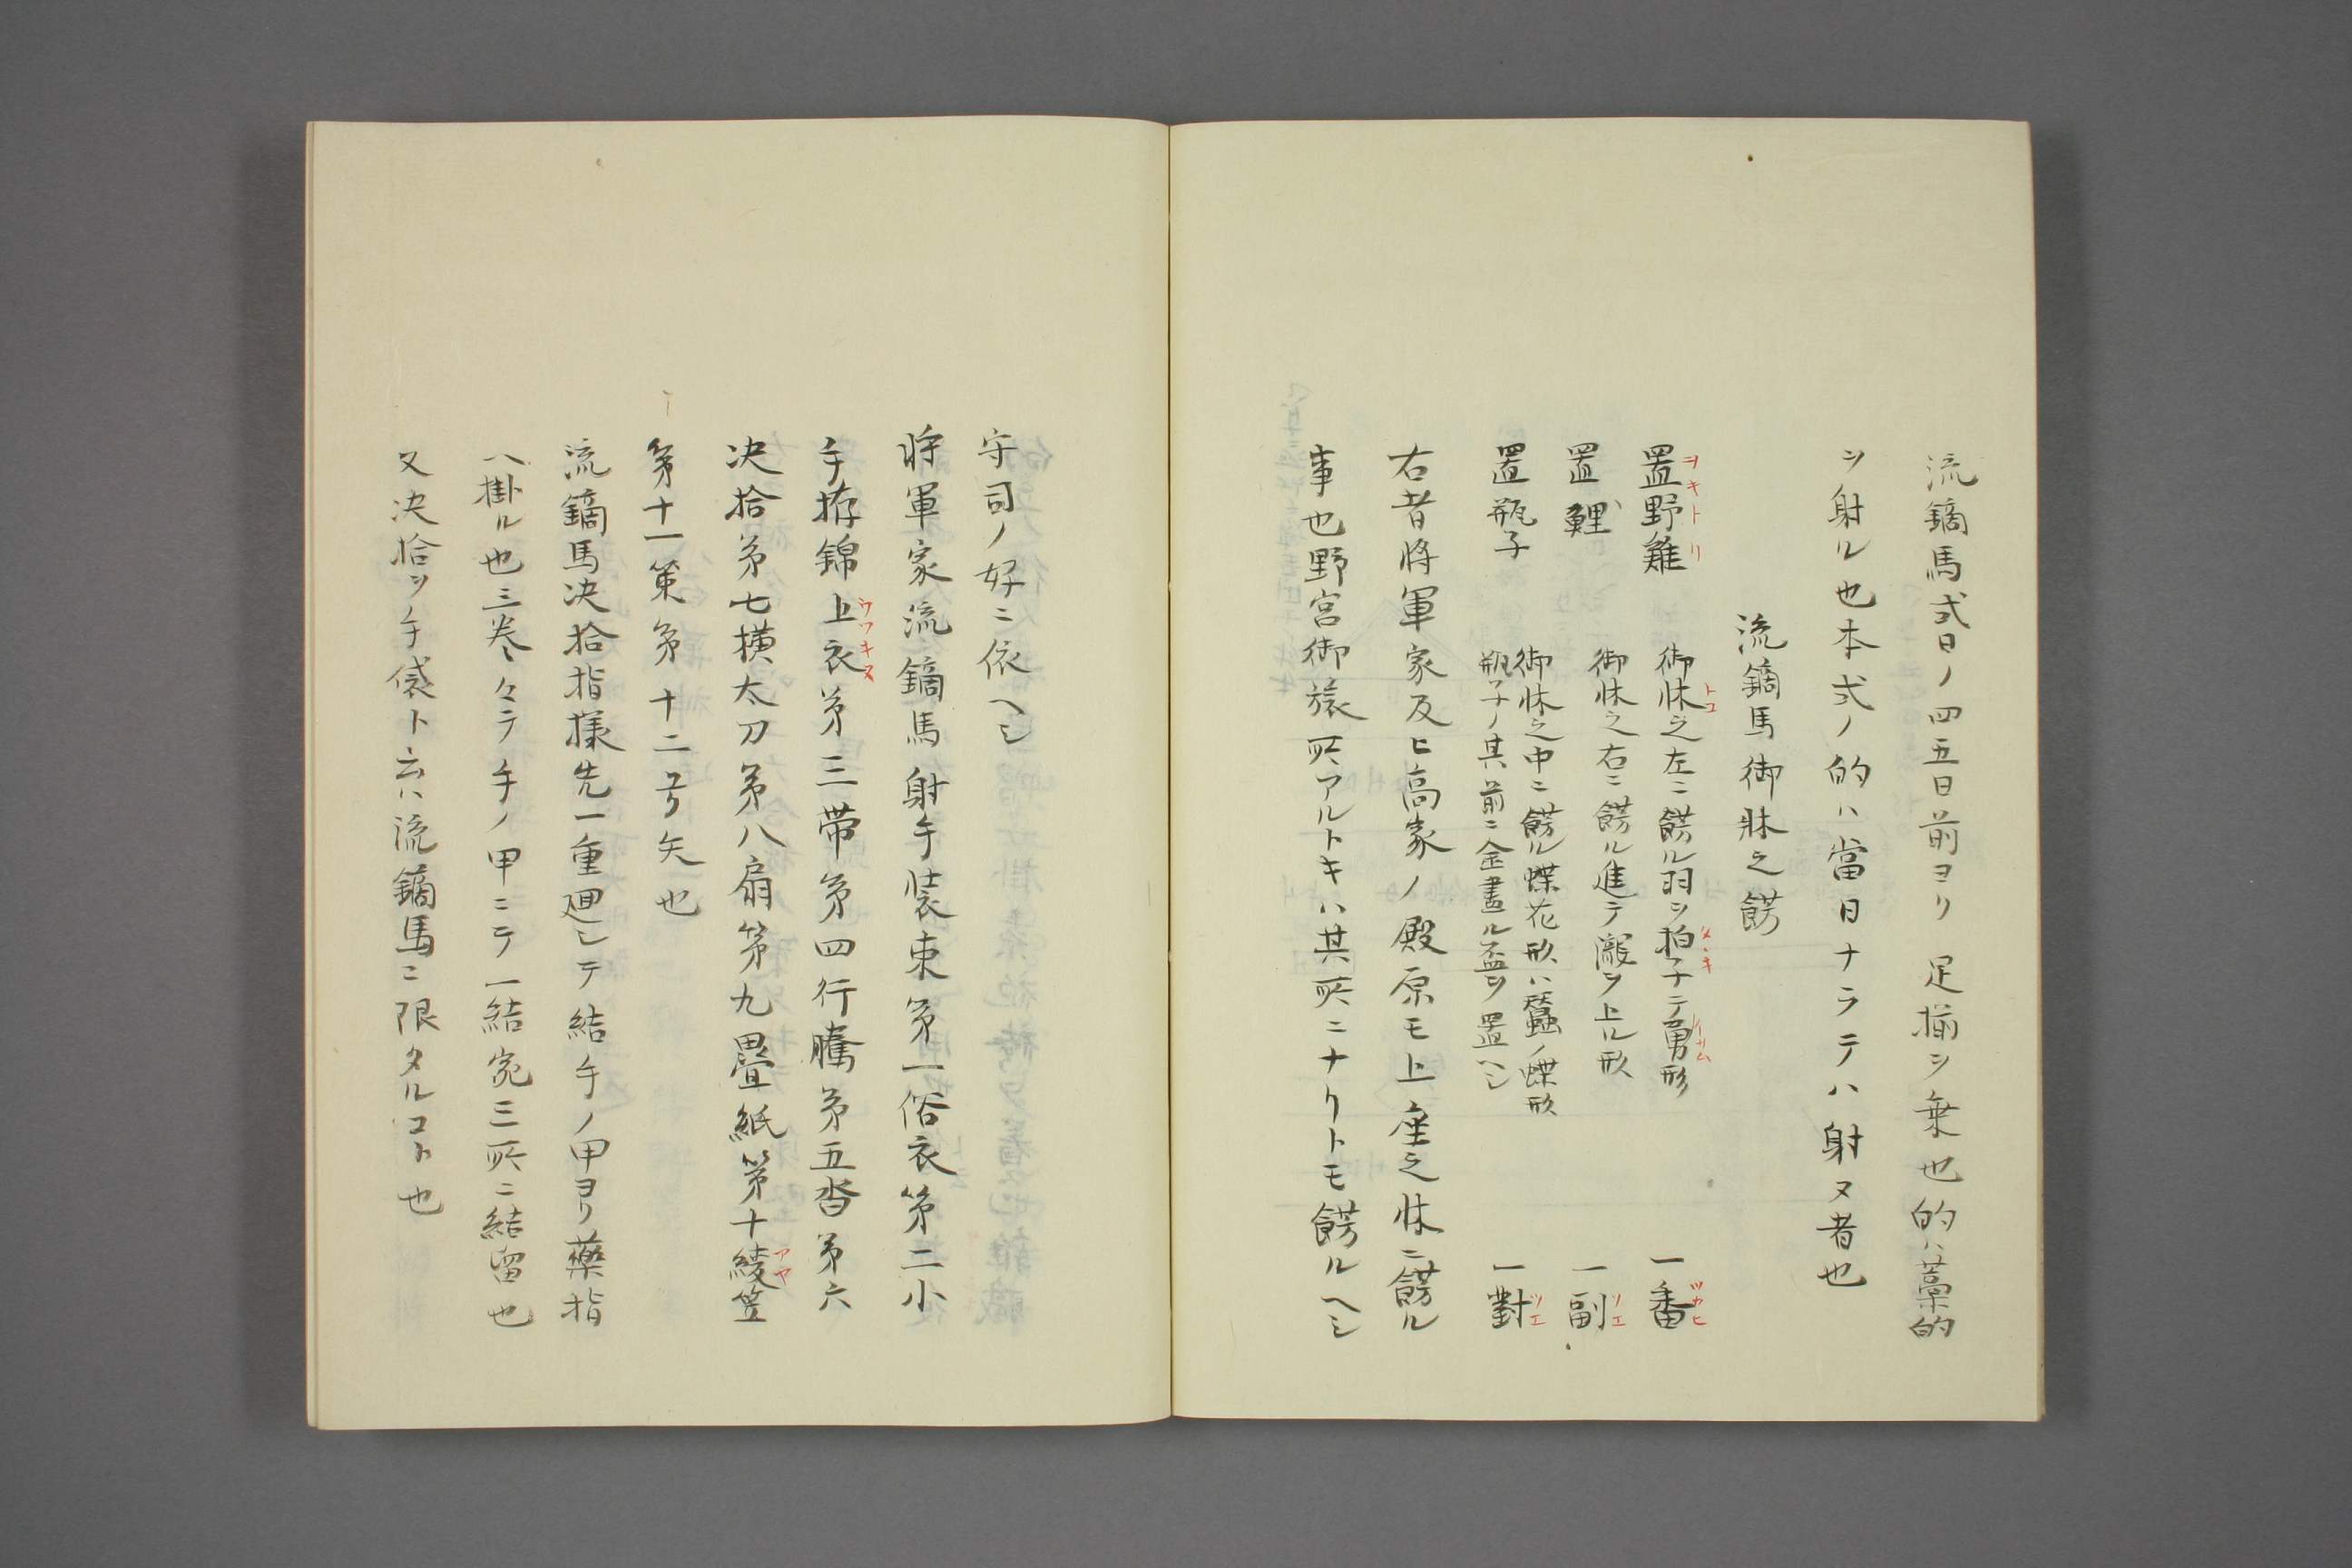 流鏑馬式日ノ四五日前ヨリ足揃ヲ乗也的ハ藁的
ヲ射ル也本式ノ的ハ當日ナラテハ射ヌ者也
流鏑馬御牀之餝
置野雞 御牀之左ニ餝ル羽ヲ拍子テ勇形 一番
ヲキトリ トコ イサム ツカヒ
置鯉 御牀之右ニ餝ル進テ瀧ヲ上ル形 一副
ソエ
置瓶子 御牀之中ニ餝ル蝶花形ハ蠶ノ蝶形
瓶子ノ其前ニ金畫ル盃ヲ置ヘシ 一對
ツエ
右者将軍家及ヒ高家ノ殿原モ上座之牀ニ餝ル
事也野宮御旅所アルトキハ其所ニナクトモ餝ルヘシ
守司ノ好ニ依ヘシ
将軍家流鏑馬射手装束第一俗衣第二小
手拵錦上衣第三帯第四行騰第五沓第六
ウワキヌ
决拾第七横太刀第八扇第九疊紙第十綾笠
アヤ
第十一策第十二弓矢也
流鏑馬决拾指様先一重廻シテ結手ノ甲ヨリ藥指
ヘ掛ル也三巻々テ手ノ甲ニテ一結宛三所ニ結留也
又决拾ヲ手袋ト云ハ流鏑馬ニ限タルコト也